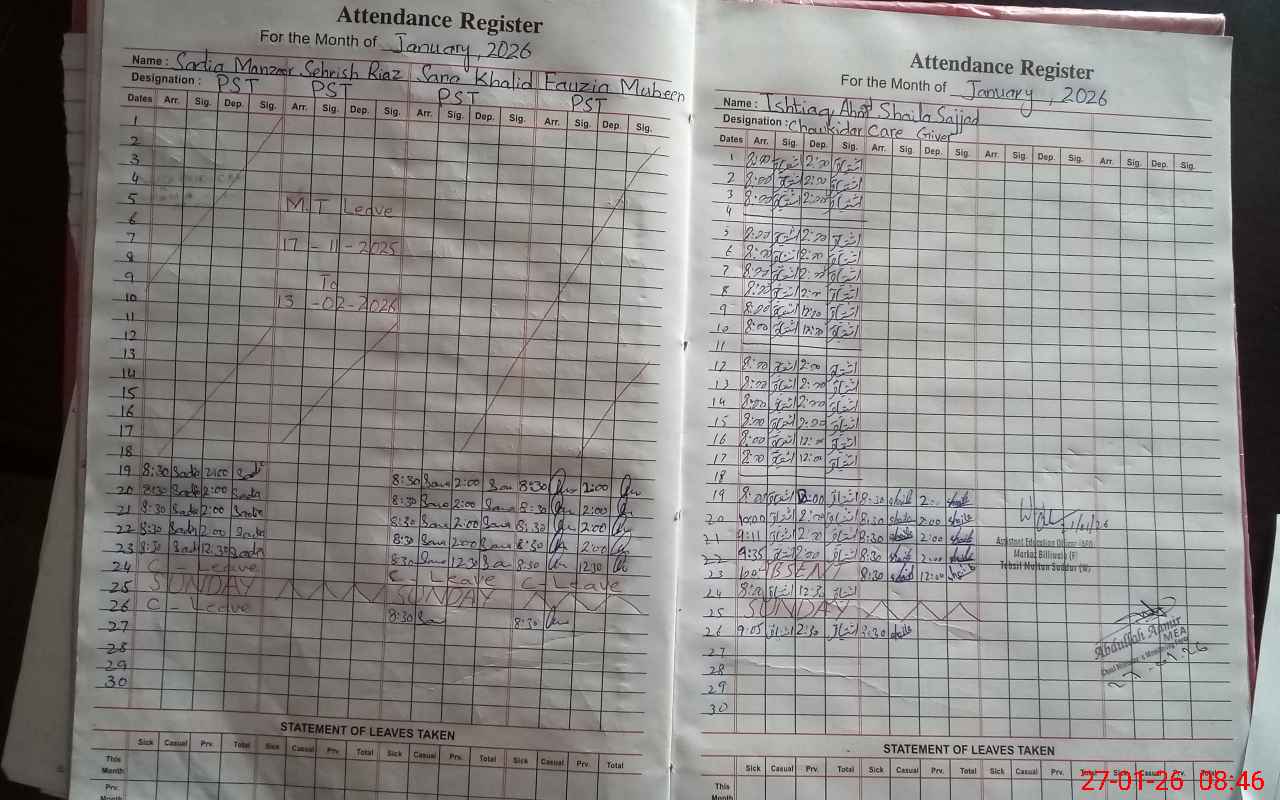 Attendance Register
For the Month of January, 2026
Name : Sadia Manzoor Sehrish Riaz Sana Khalid Fauzia Mubeen
Designation : PST PST PST PST
Dates Arr. Sig. Dep. Sig. Arr. Sig. Dep. Sig. Arr. Sig. Dep. Sig. Arr. Sig. Dep. Sig.
1
2
3
4
5 M.T Leave
6
7 17-11-2025
8
9 To
10 13-02-2026
11
12
13
14
15
16
17
18
19 8:30 Sadia 2:00 Sadia 8:30 Sana 2:00 Sana 8:30 2:00
20 8:30 Sadia 2:00 Sadia 8:30 Sana 2:00 Sana 8:30 2:00
21 8:30 Sadia 2:00 Sadia 8:30 Sana 2:00 Sana 8:30 2:00
22 8:30 Sadia 2:00 Sadia 8:30 Sana 2:00 Sana 8:30 2:00
23 8:30 Sadia 12:30 Sadia 8:30 Sana 12:30 Sana 8:30 12:30
24 C - Leave C - Leave C - Leave
25 SUNDAY SUNDAY
26 C - Leave 8:30 Sana 8:30
27
28
29
30
STATEMENT OF LEAVES TAKEN
Sick Casual Prv. Total Sick Casual Prv. Total Sick Casual Prv. Total Sick Casual Prv. Total
This Month
Prv. Month
Attendance Register
For the Month of January, 2026
Name : Ishtiaq Ahmad Shaila Sajjad
Designation : Chowkidar Care Giver
Dates Arr. Sig. Dep. Sig. Arr. Sig. Dep. Sig. Arr. Sig. Dep. Sig. Arr. Sig. Dep. Sig.
1 8:00 اشتیاق 2:00 اشتیاق
2 8:00 اشتیاق 2:00 اشتیاق
3 8:00 اشتیاق 2:00 اشتیاق
4
5 8:00 اشتیاق 2:00 اشتیاق
6 8:00 اشتیاق 2:00 اشتیاق
7 8:00 اشتیاق 2:00 اشتیاق
8 8:00 اشتیاق 2:00 اشتیاق
9 8:00 اشتیاق 12:30 اشتیاق
10 8:00 اشتیاق 12:30 اشتیاق
11
12 8:00 اشتیاق 2:00 اشتیاق
13 8:00 اشتیاق 2:00 اشتیاق
14 8:00 اشتیاق 2:00 اشتیاق
15 8:00 اشتیاق 2:00 اشتیاق
16 8:00 اشتیاق 12:00 اشتیاق
17 8:00 اشتیاق 12:00 اشتیاق
18
19 8:00 اشتیاق 2:00 اشتیاق 8:30 shaila 2:00 shaila
20 10:00 اشتیاق 2:00 اشتیاق 8:30 shaila 2:00 shaila
21 9:11 اشتیاق 2:00 اشتیاق 8:30 shaila 2:00 shaila
22 9:35 اشتیاق 2:00 اشتیاق 8:30 shaila 2:00 shaila
23 ABSENT 8:30 shaila 12:00 shaila
24 8:00 اشتیاق 12:30 اشتیاق
25 SUNDAY
26 9:05 اشتیاق 2:30 اشتیاق 8:30 shaila
27
28
29
30
Assistant Education Officer (AEO)
Markaz Billiwala (F)
Tehsil Multan Saddar (W)
Abdullah Aamir
MEA
27-01-26
STATEMENT OF LEAVES TAKEN
Sick Casual Prv. Total Sick Casual Prv. Total Sick Casual Prv. Total Sick Casual Prv. Total
This Month
27-01-26 08:46